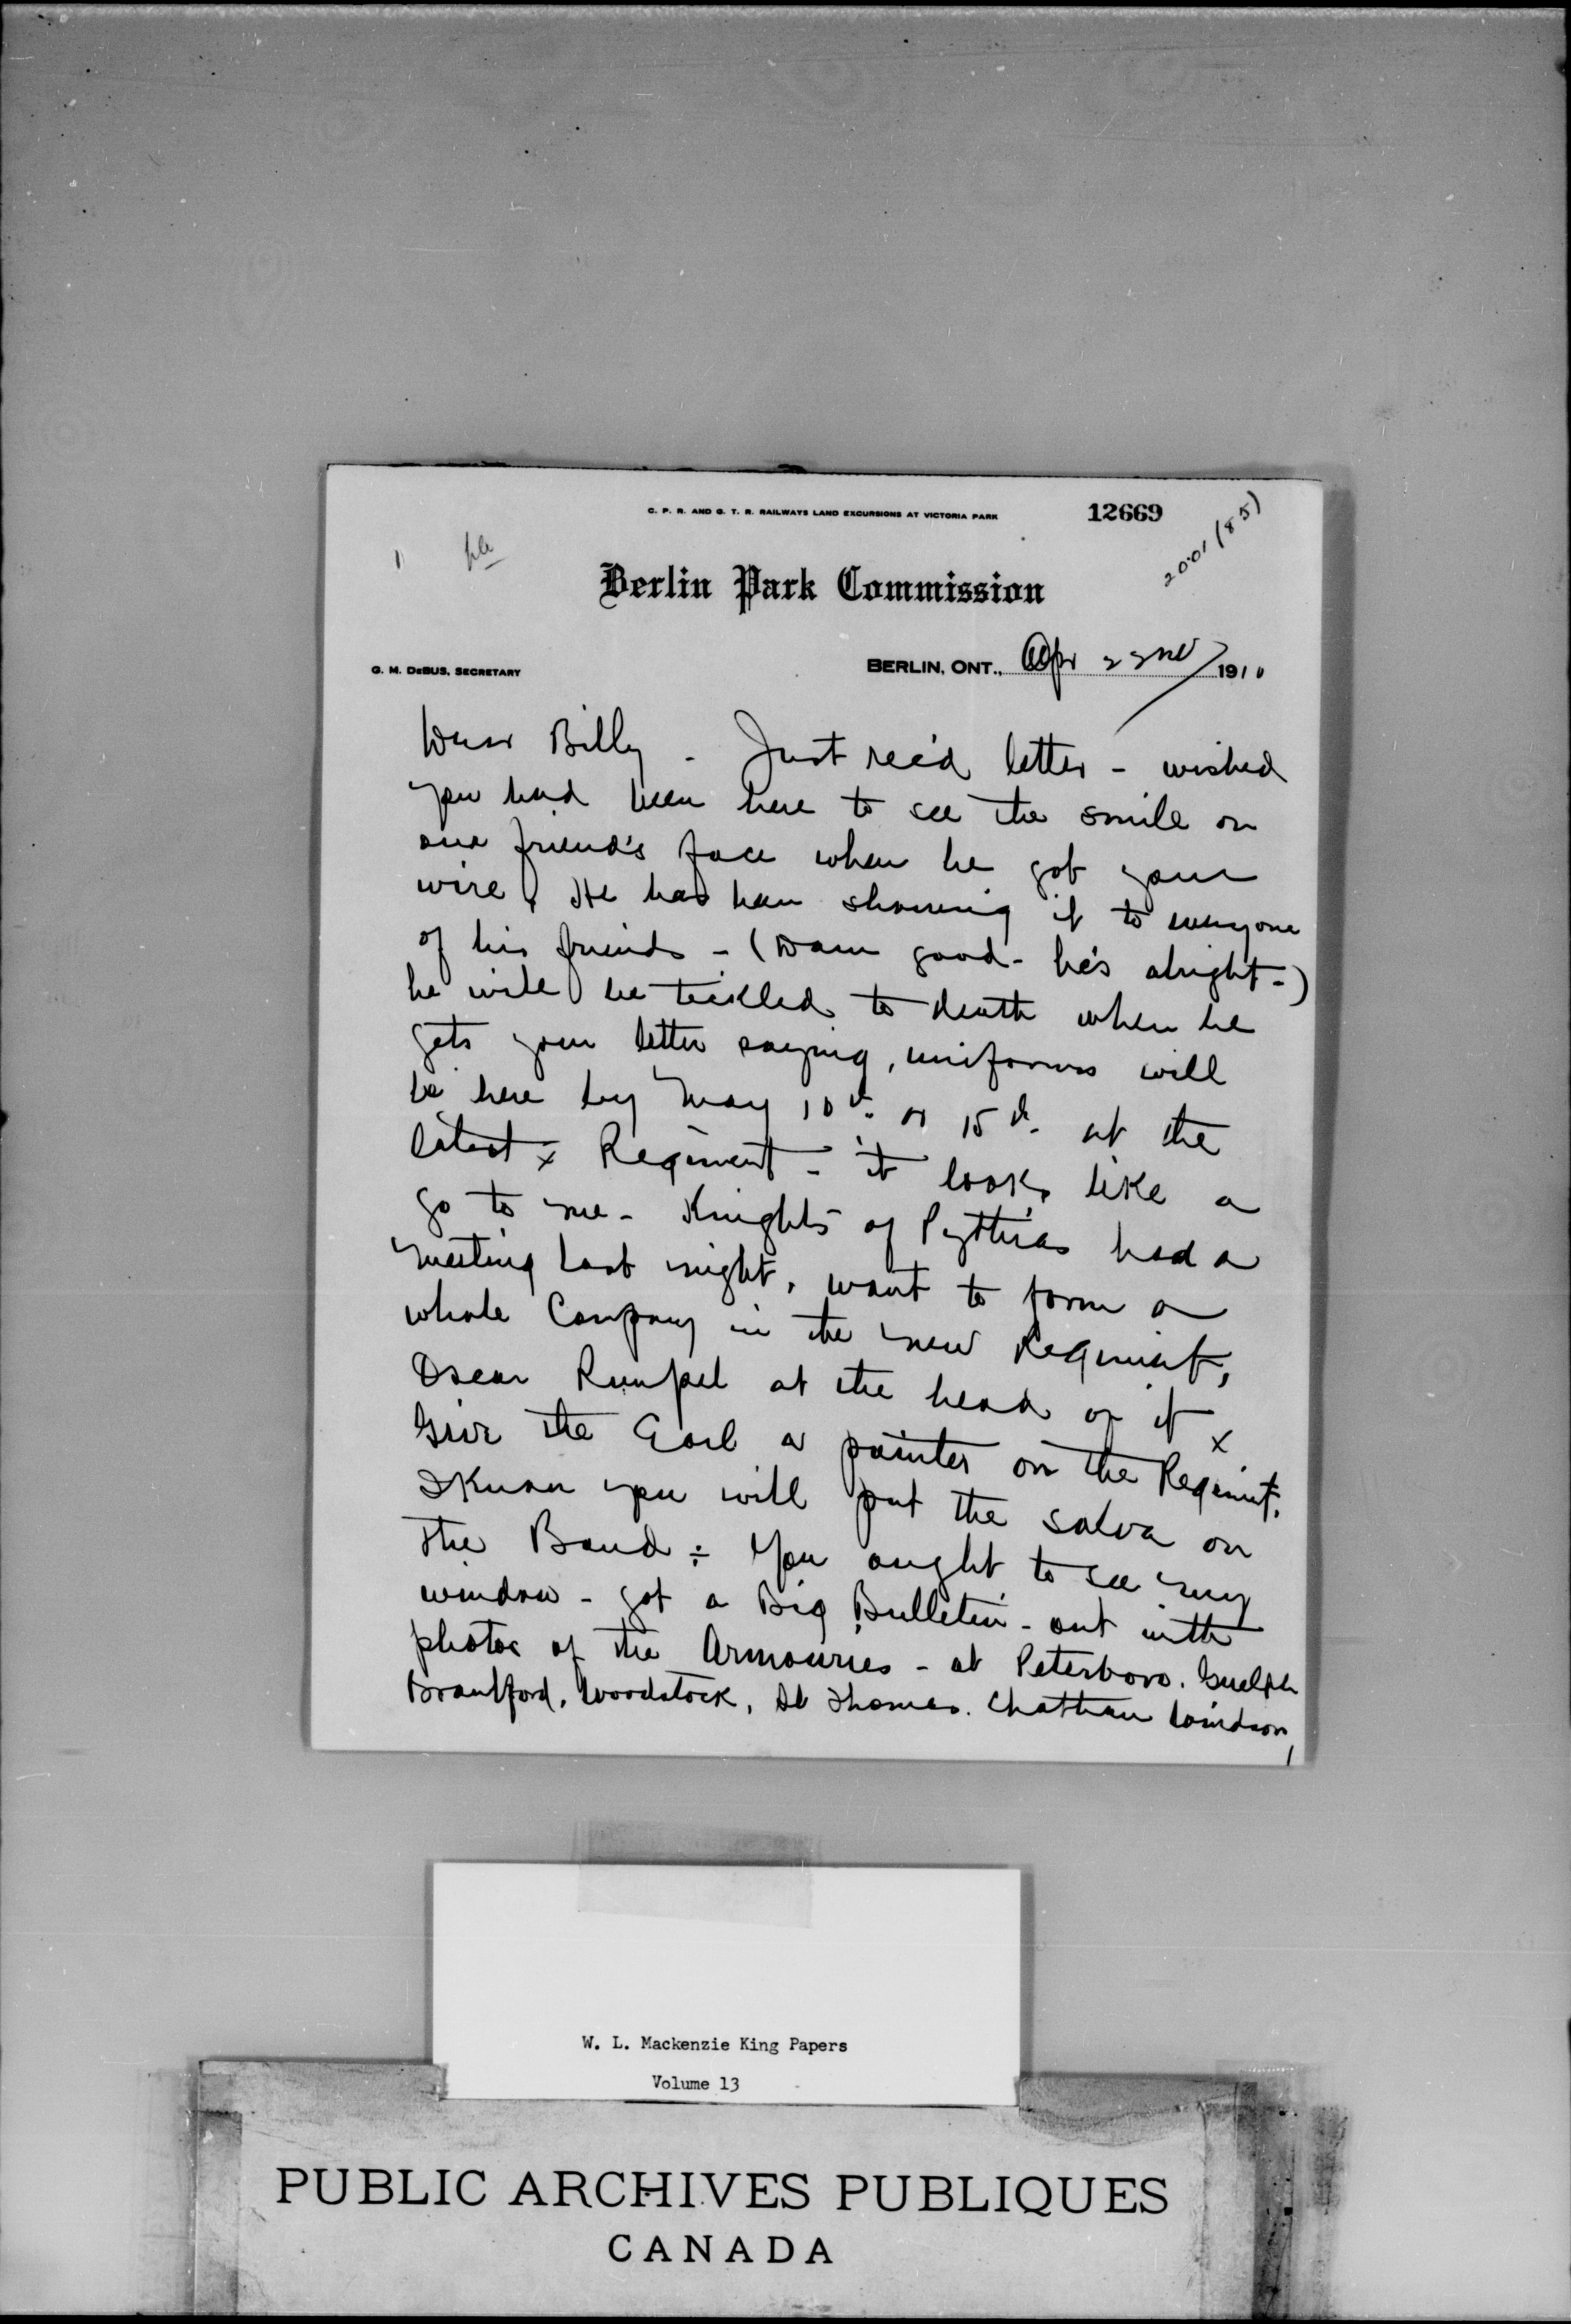 C. P. R. AND G. T. R. RAILWAYS LAND EXCURSIONS AT VICTORIA PARK
12669
2001 (85)
1 file
Berlin Park Commission
G. M. DeBUS, SECRETARY
BERLIN, ONT., Apr 22nd 1910
Dear Billy - Just rec'd letter - wished
you had been here to see the smile on
our friend's face when he got your
wire. He has been showing it to everyone
of his friends - (Dam good - he's alright -)
he will be tickled to death when he
gets your letter saying, uniforms will
be here by May 10th or 15th at the
latest x Regiment - it looks like a
go to me - Knights of Pythias had a
meeting last night, want to form a
whole Company in the new Regiment,
Oscar Rumpel at the head of it x
Give the Earl a pointer on the Regiment.
I know you will put the salve on
the Band ÷ You ought to see my
window - got a Big Bulletin - out with
photos of the Armouries - at Peterboro. Guelph
Brantford, Woodstock, St Thomas. Chatham Windsor,
W. L. Mackenzie King Papers
Volume 13
PUBLIC ARCHIVES PUBLIQUES
CANADA